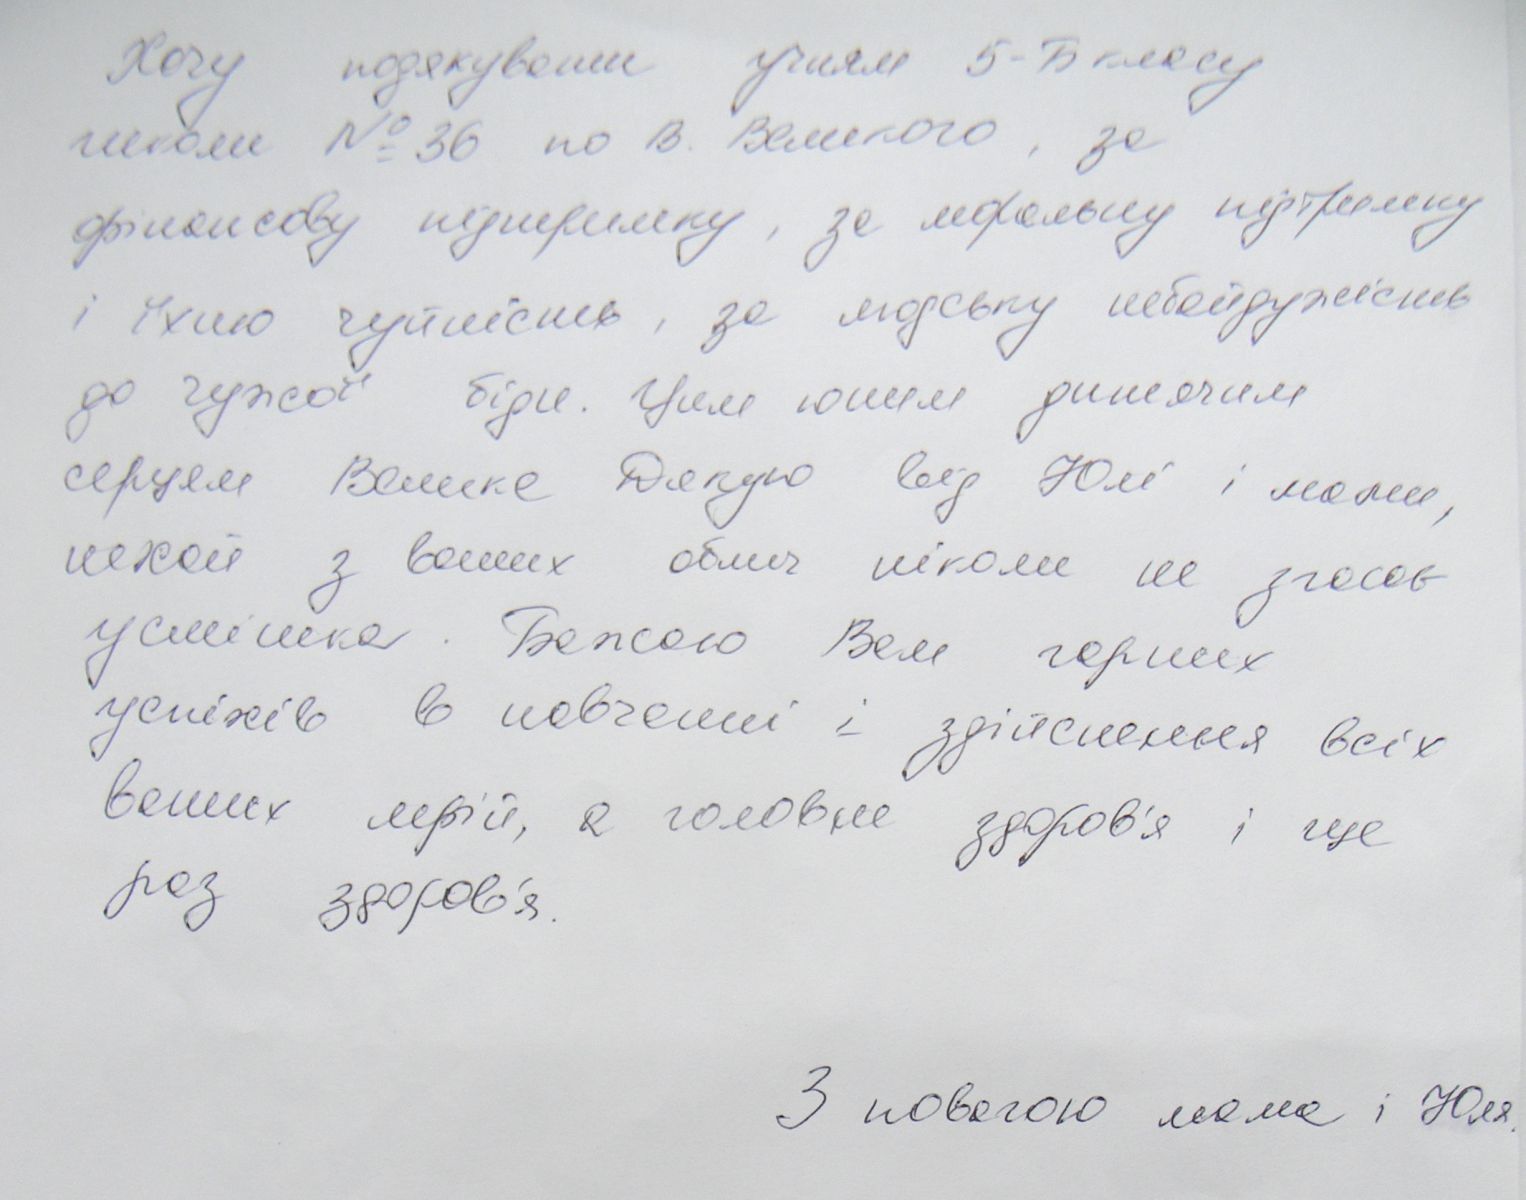 Хочу подякувати учням 5-Б класу
школи № 36 по В. Великого, за
фінансову підтримку, за моральну підтримку
і їхню чуйність, за людську небайдужість
до чужої біди. Цим юним дитячим
серцям Велике Дякую від Юлі і мами,
нехай з ваших облич ніколи не згасає
усмішка. Бажаю Вам гарних
успіхів в навчанні і здійснення всіх
ваших мрій, а головне здоров'я і ще
раз здоров'я.
З повагою мама і Юля.